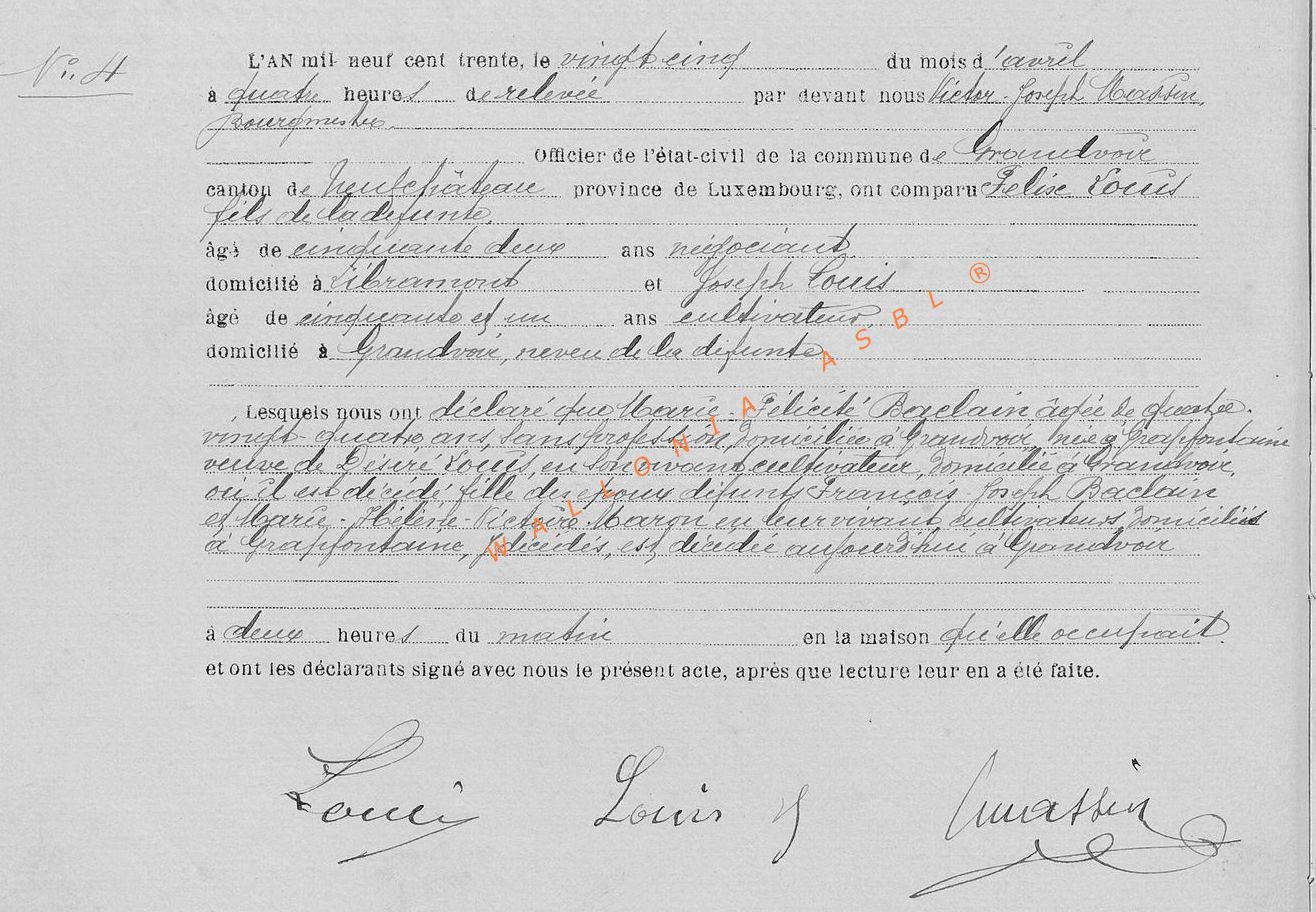 N°. 4
L'AN mil neuf cent trente, le vingt cinq du mois d'avril
à quatre heures de relevée par devant nous Victor-Joseph Massin,
Bourgmestre,
Officier de l'état-civil de la commune de Grandvoir
canton de Neufchâteau province de Luxembourg, ont comparu Felix Louis
fils de la défunte,
âgé de cinquante deux ans négociant
domicilié à Libramont et Joseph Louis
âgé de cinquante et un ans cultivateur,
domicilié à Grandvoir, neveu de la défunte
Lesquels nous ont déclaré que Marie-Félicité Baclain âgée de quatre-
vingt-quatre ans, sans profession, domiciliée à Grandvoir, née à Grapfontaine
veuve de Désiré Louis, en son vivant cultivateur, domicilié à Grandvoir,
où il est décédé fille des époux défunts François-Joseph Baclain
et Marie-Hélène-Victoire Maron en leur vivant cultivateurs domiciliés
à Grapfontaine, y décédés, est décédée aujourd'hui à Grandvoir
à deux heures du matin en la maison qu'elle occupait.
et ont les déclarants signé avec nous le présent acte, après que lecture leur en a été faite.
Louis Louis J Vmassin
WALLONIA ASBL ®